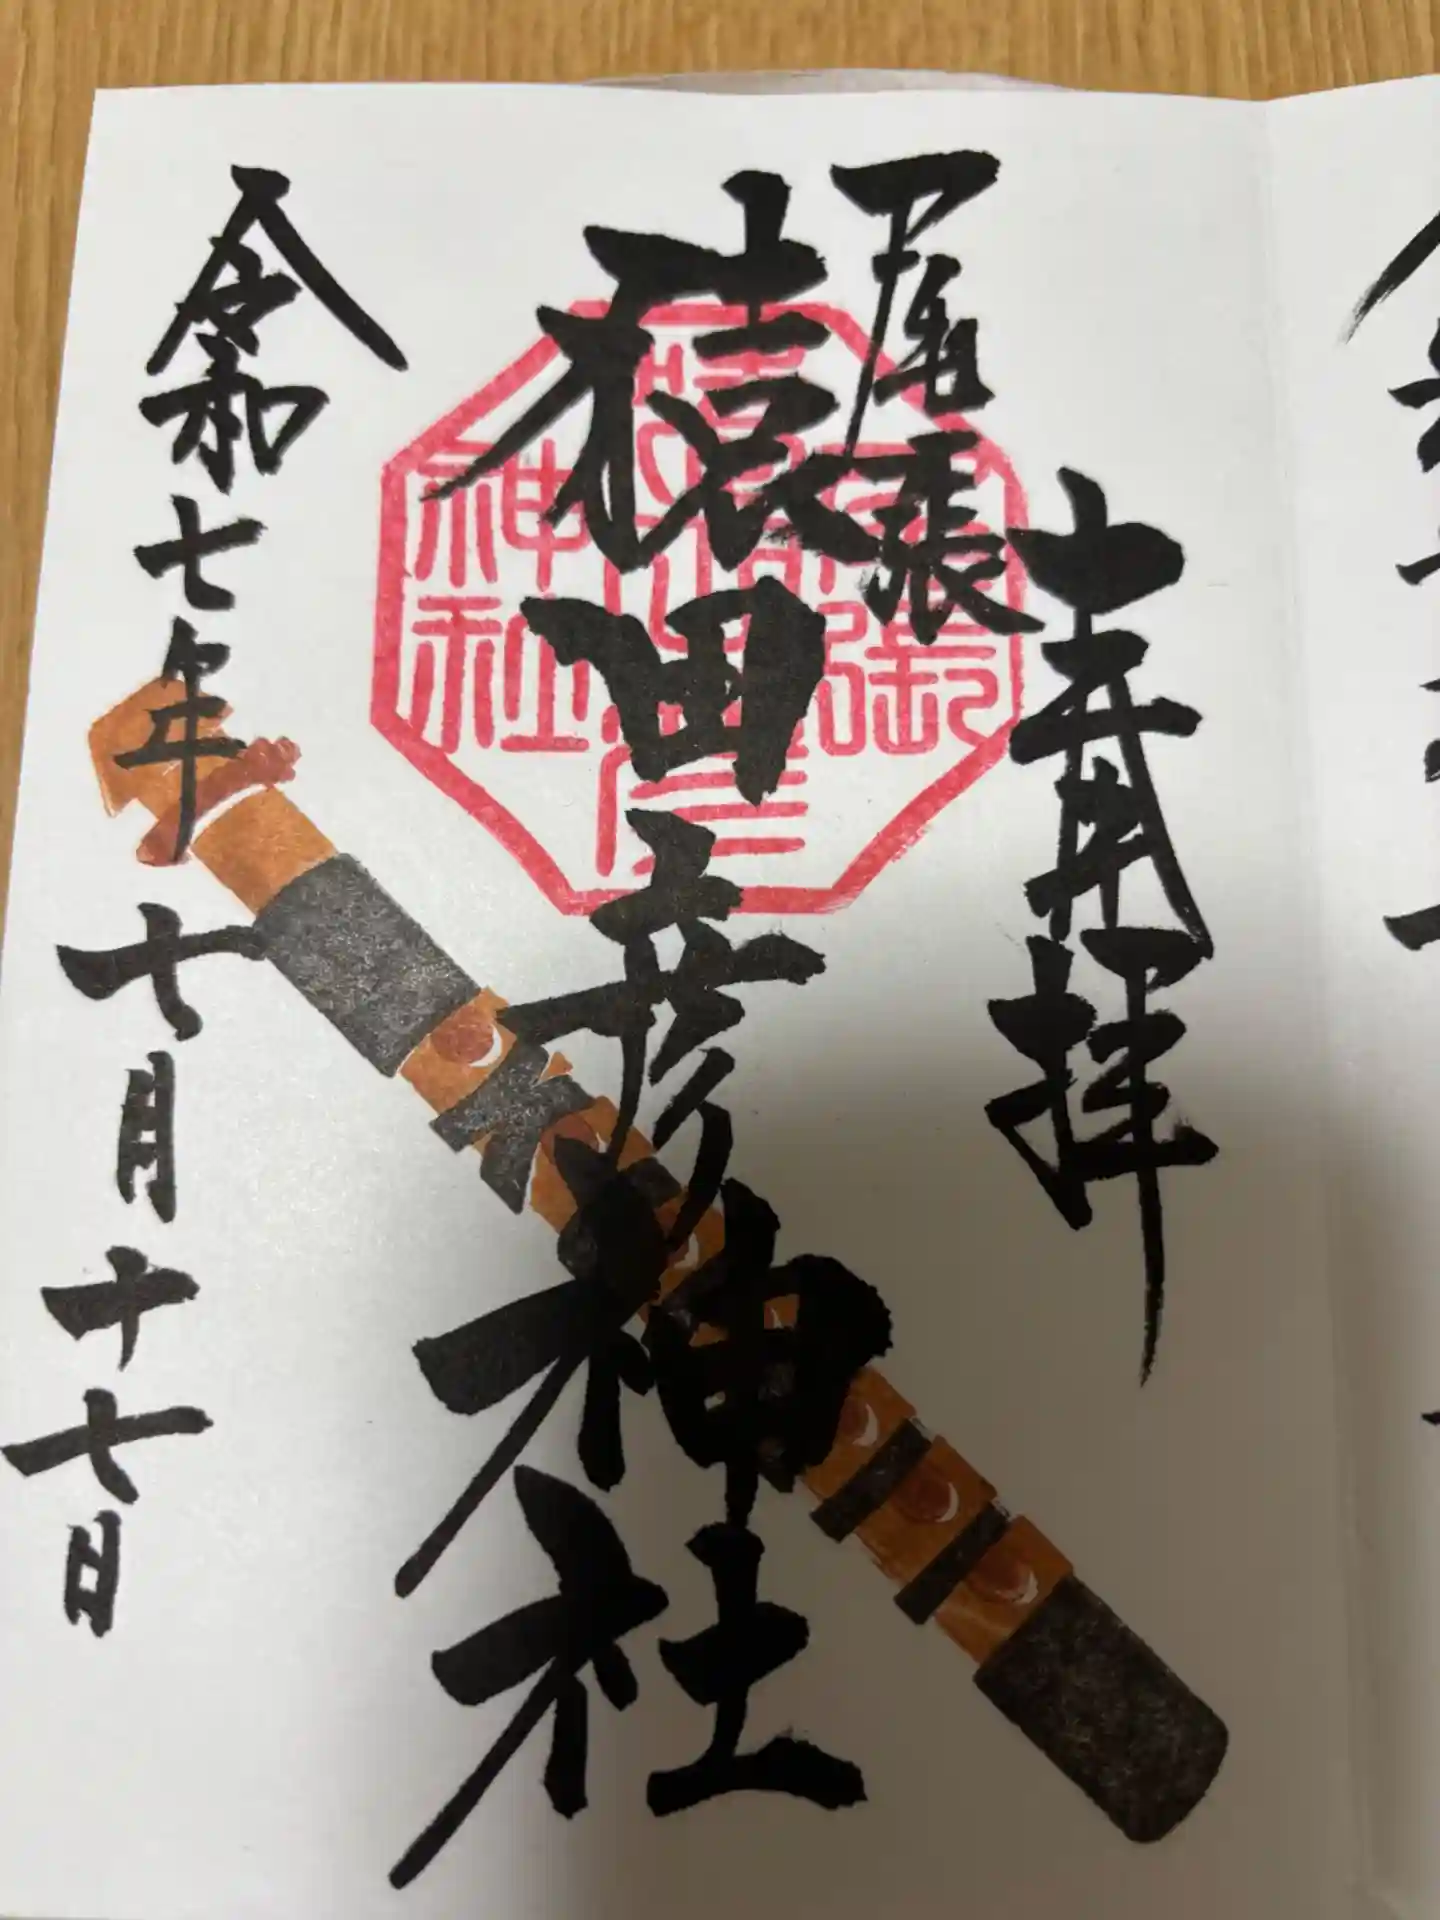 奉拝
尾張
猿田彦神社
令和七年十月十七日
尾張
猿田彦
神社